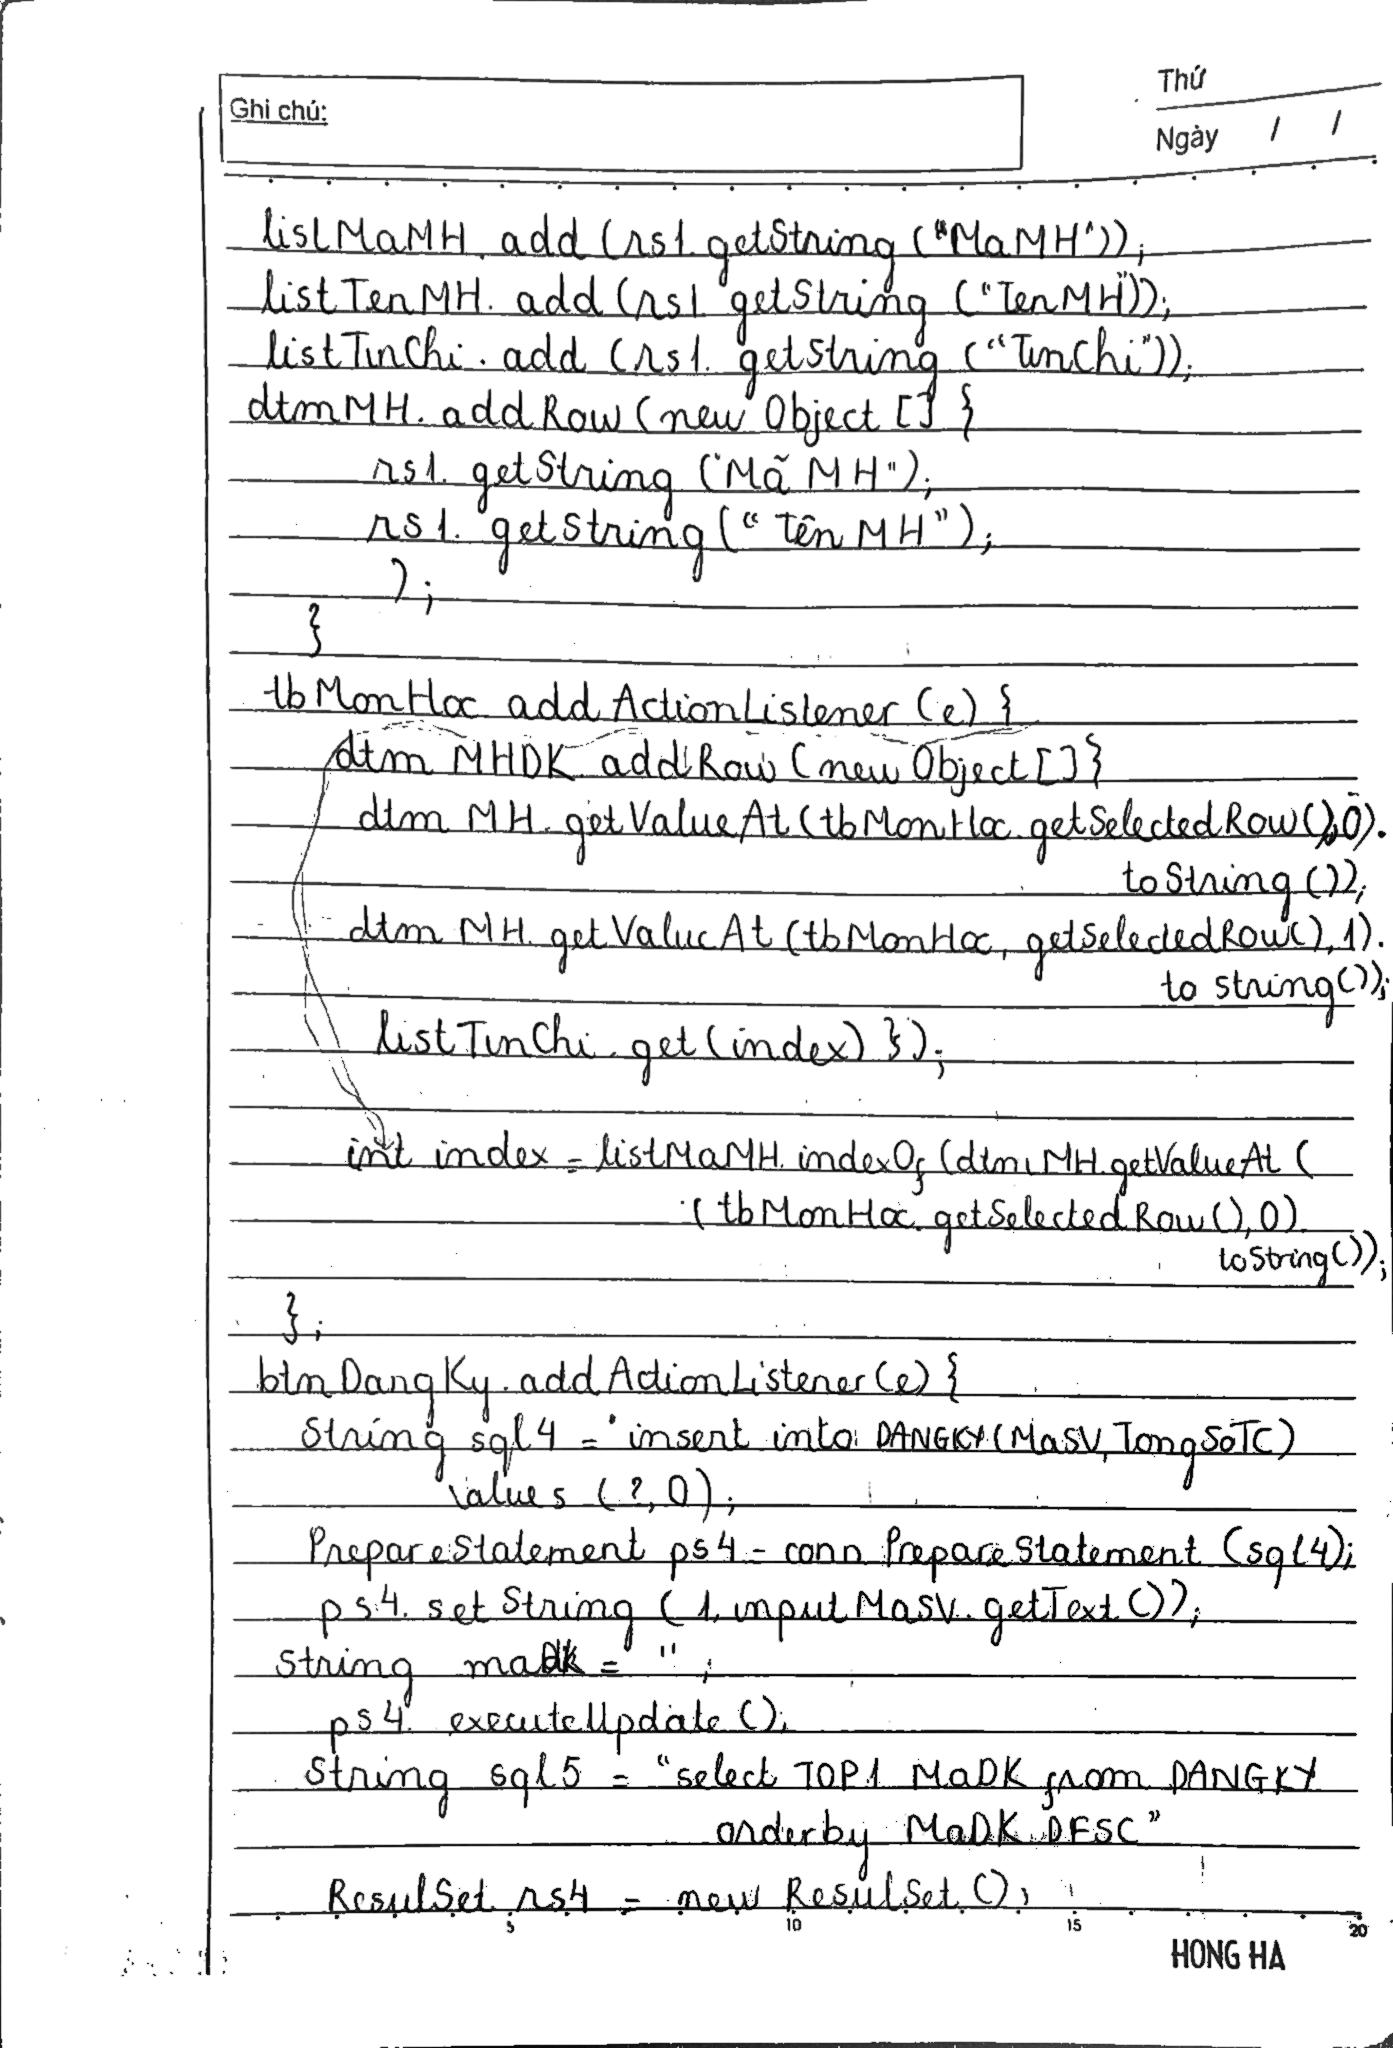 Ghi chú:
Thứ
Ngày / /
listMaMH. add (rs1. getString ("MaMH"));
listTenMH. add (rs1 getString ("TenMH"));
listTinChi. add (rs1. getString ("TinChi"));
dtmMH. addRow (new Object [] {
rs1. getString ("Mã MH");
rs1. getString (" Tên MH");
);
}
tbMonHoc addActionListener (e) {
dtm MHDK addRow (new Object [] {
dtm MH. getValueAt (tbMonHoc. getSelectedRow(), 0).
toString ());
dtm MH. getValueAt (tbMonHoc, getSelectedRow(), 1).
to string());
listTinChi. get (index) });
int index = listMaMH. indexOf (dtm MH.getValueAt (
( tbMonHoc. getSelectedRow(), 0).
toString());
};
btnDangKy. addActionListener (e) {
String sql4 = " insert into DANGKY (MaSV, TongSoTC)
values ( ?, 0) ;
PrepareStatement ps4 = conn PrepareStatement (sql4);
ps4. set String ( 1, inputMaSV. getText ());
String maDk = " ;
ps4. executeUpdate ();
String sql5 = "select TOP1 MaDK from DANGKY
orderby MaDK DESC"
ResulSet rs4 = new ResulSet ();
5 10 15 20
HONG HA